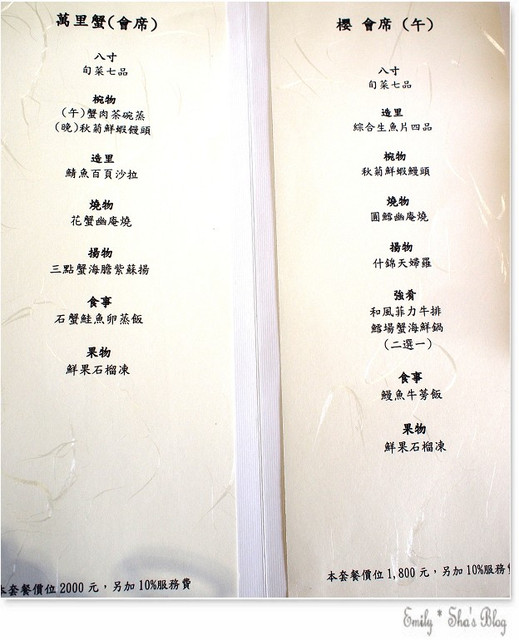 萬里蟹(會席)
八寸
旬菜七品
椀物
(午)蟹肉茶碗蒸
(晚)秋菊鮮蝦饅頭
造里
鯖魚百頁沙拉
燒物
花蟹幽庵燒
揚物
三點蟹海膽紫蘇揚
食事
石蟹鮭魚卵蒸飯
果物
鮮果石榴凍
本套餐價位 2000 元，另加 10%服務費
櫻 會席 (午)
八寸
旬菜七品
造里
綜合生魚片四品
椀物
秋菊鮮蝦饅頭
燒物
圓鱈幽庵燒
揚物
什錦天婦羅
強肴
和風菲力牛排
鱈場蟹海鮮鍋
(二選一)
食事
鰻魚牛蒡飯
果物
鮮果石榴凍
本套餐價位 1,800 元，另加 10%服務
Emily * Sha's Blog